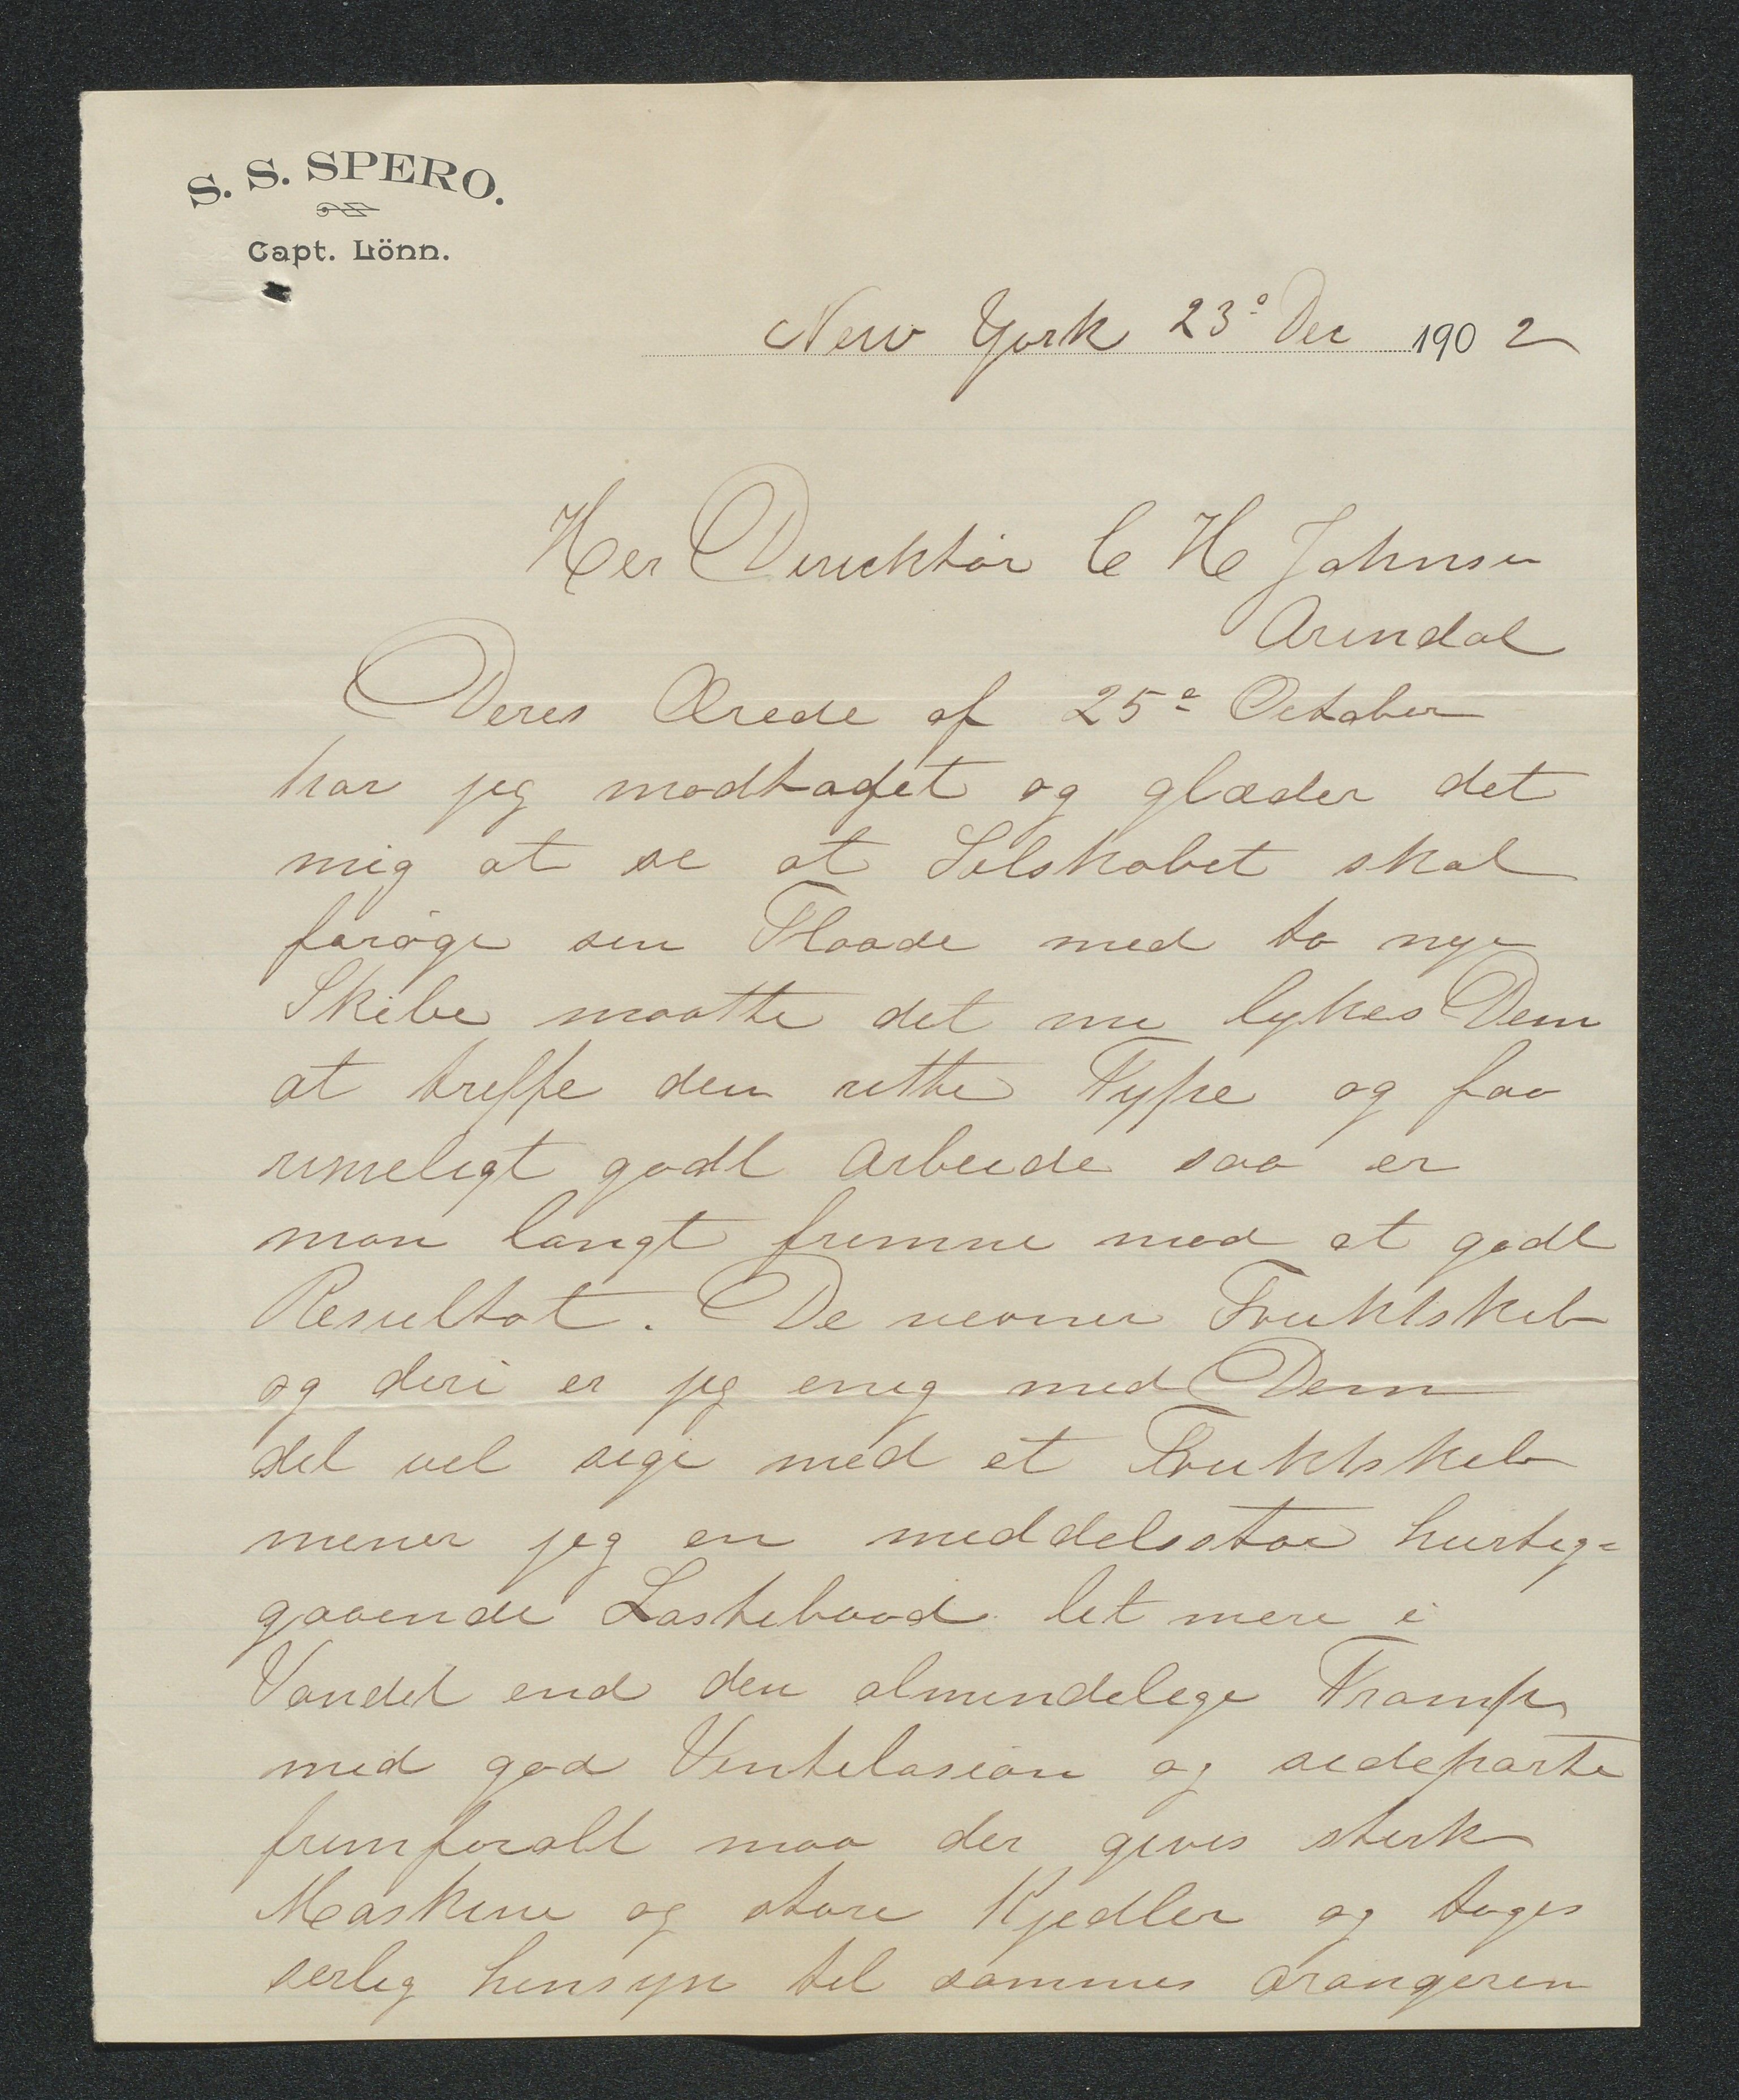 S. S. SPERO.
Capt. Lönn.
New York 23º Dec 1902
Her Direcktör C H Johnsen
Arendal
Deres Ærede af 25º October
har jeg modtaget og glæder det
mig at se at Selskabet skal
forøge sin Flaade med to nye
Skibe maatte det nu lykes Dem
at treffe den rette Type og faa
rimeligt godt Arbeide saa er
man langt fremme med et godt
Resultat. De nevner Fruktskib
og deri er jeg enig med Dem
det vel sige med et Fruktskib
mener jeg en middelsstor hurtig=
gaaende Lastebaad let mere i
Vandet end den almindelige Tramp
med god Ventelasion og sideporte
fremforalt maa der gives sterk
Maskine og store Kjedler og tages
serlig hensyn til sammes arangeren